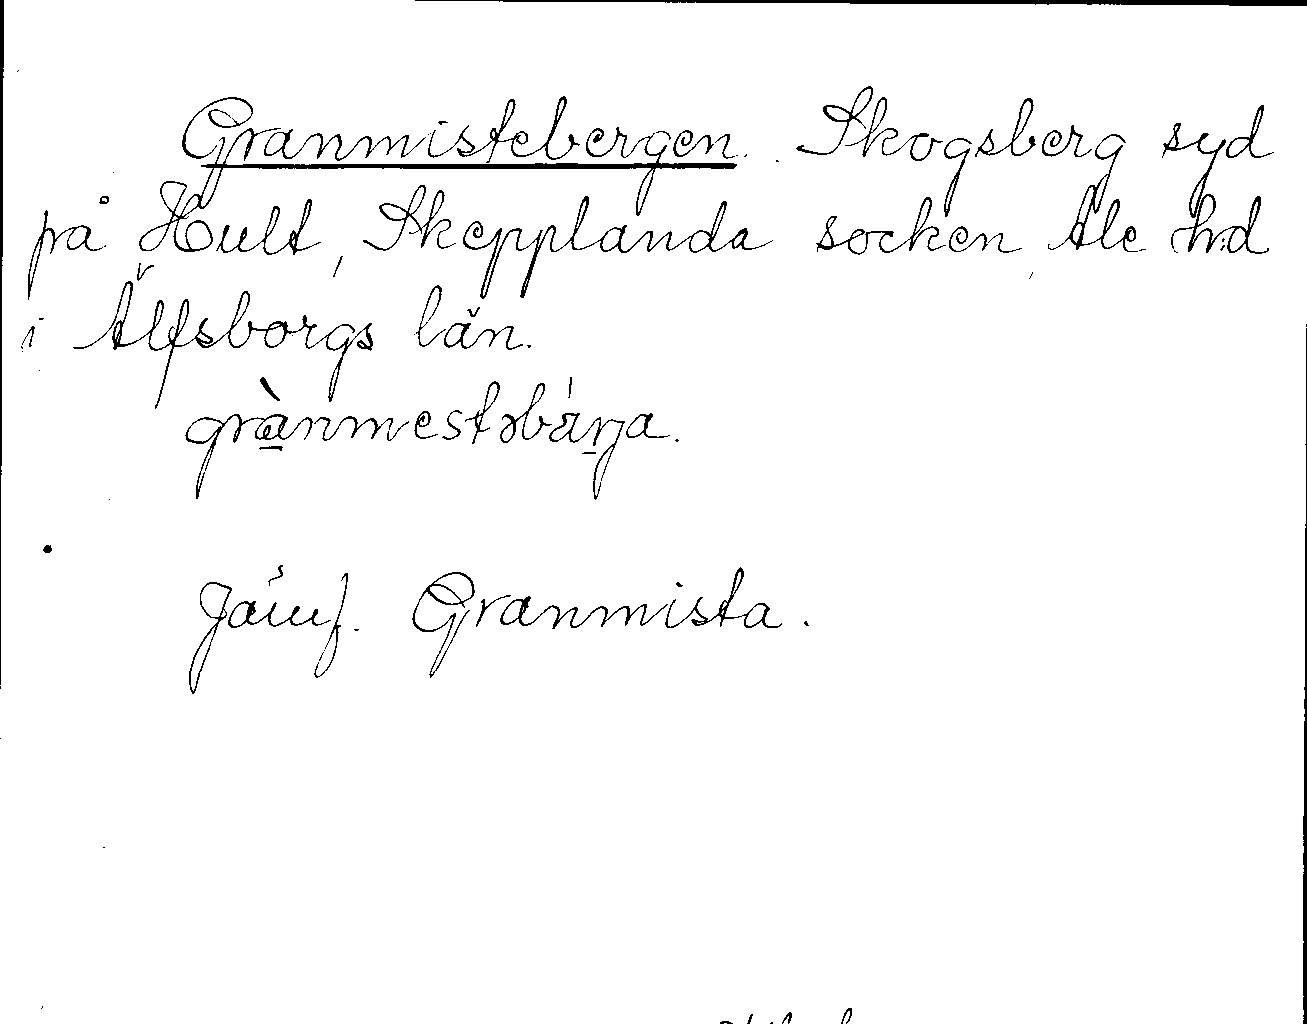 Granmistebergen. Skogsberg syd
på Hult, Skepplanda socken, Ale h:d
i Älfsborgs län.
grànmestəbärja.
Jämf. Granmista.